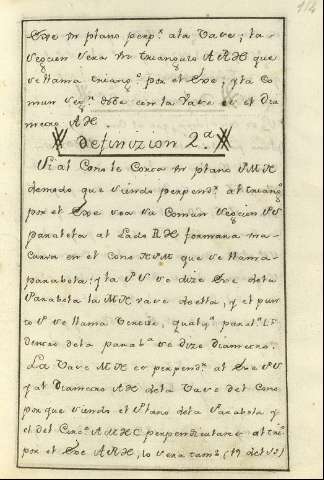 114
Exe un plano perp.r a la Vase; la
seccion sera un triangulo ARH que
se llama triang.o por el Exe; y la Co
mun sec.n de este con la Vase es el Dia
metro AH.
Definizion 2.a
Si al Cono le Corta un plano PMK
de modo que siendo perpend.r al triang.o
por el Exe sea su Comun seccion PS
paralela al Lado RH formara una
Curva en el cono KPM que se llama
parabola: y la PS se dize Exe de la
Parabola la MK vase de ella, y el pun
to P se llama Vertice, qualq.a paral.a
dentro de la parab.a se dize Diametro.
La Vase MK es perpend.r al Exe PS
y al Diametro AH de la Vase del Cono
porque siendo el Plano de la Parabola y
el del Circ.o AMHC perpendicular al tri.o
por el Exe ARH, lo sera tamb.n (19 del